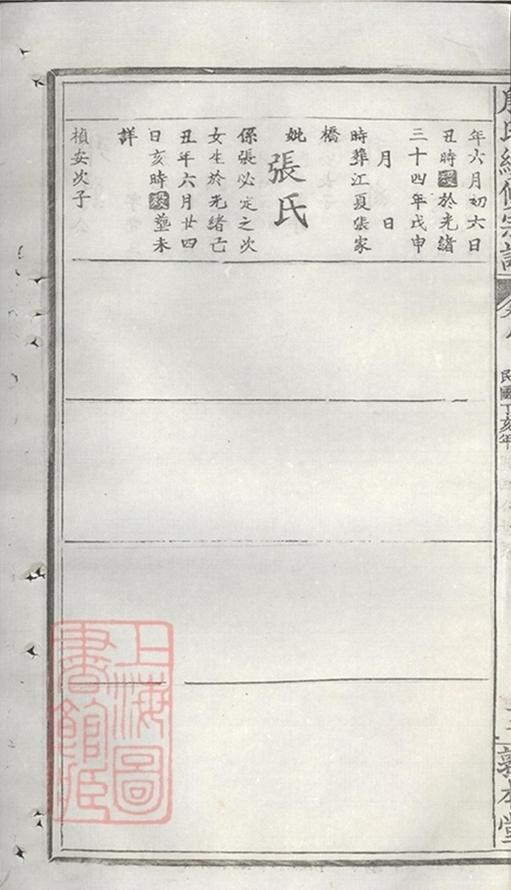 年六月初六日
丑時歿於光緒
三十四年戊申
月 日
時葬江夏張家
橋
妣
張氏
係張必定之次
女生於光緒己
丑年六月廿四
日亥時歿塟未
詳
楨安次子
氏續修宗譜
民國丁亥年
敦本堂
上海圖
書館藏